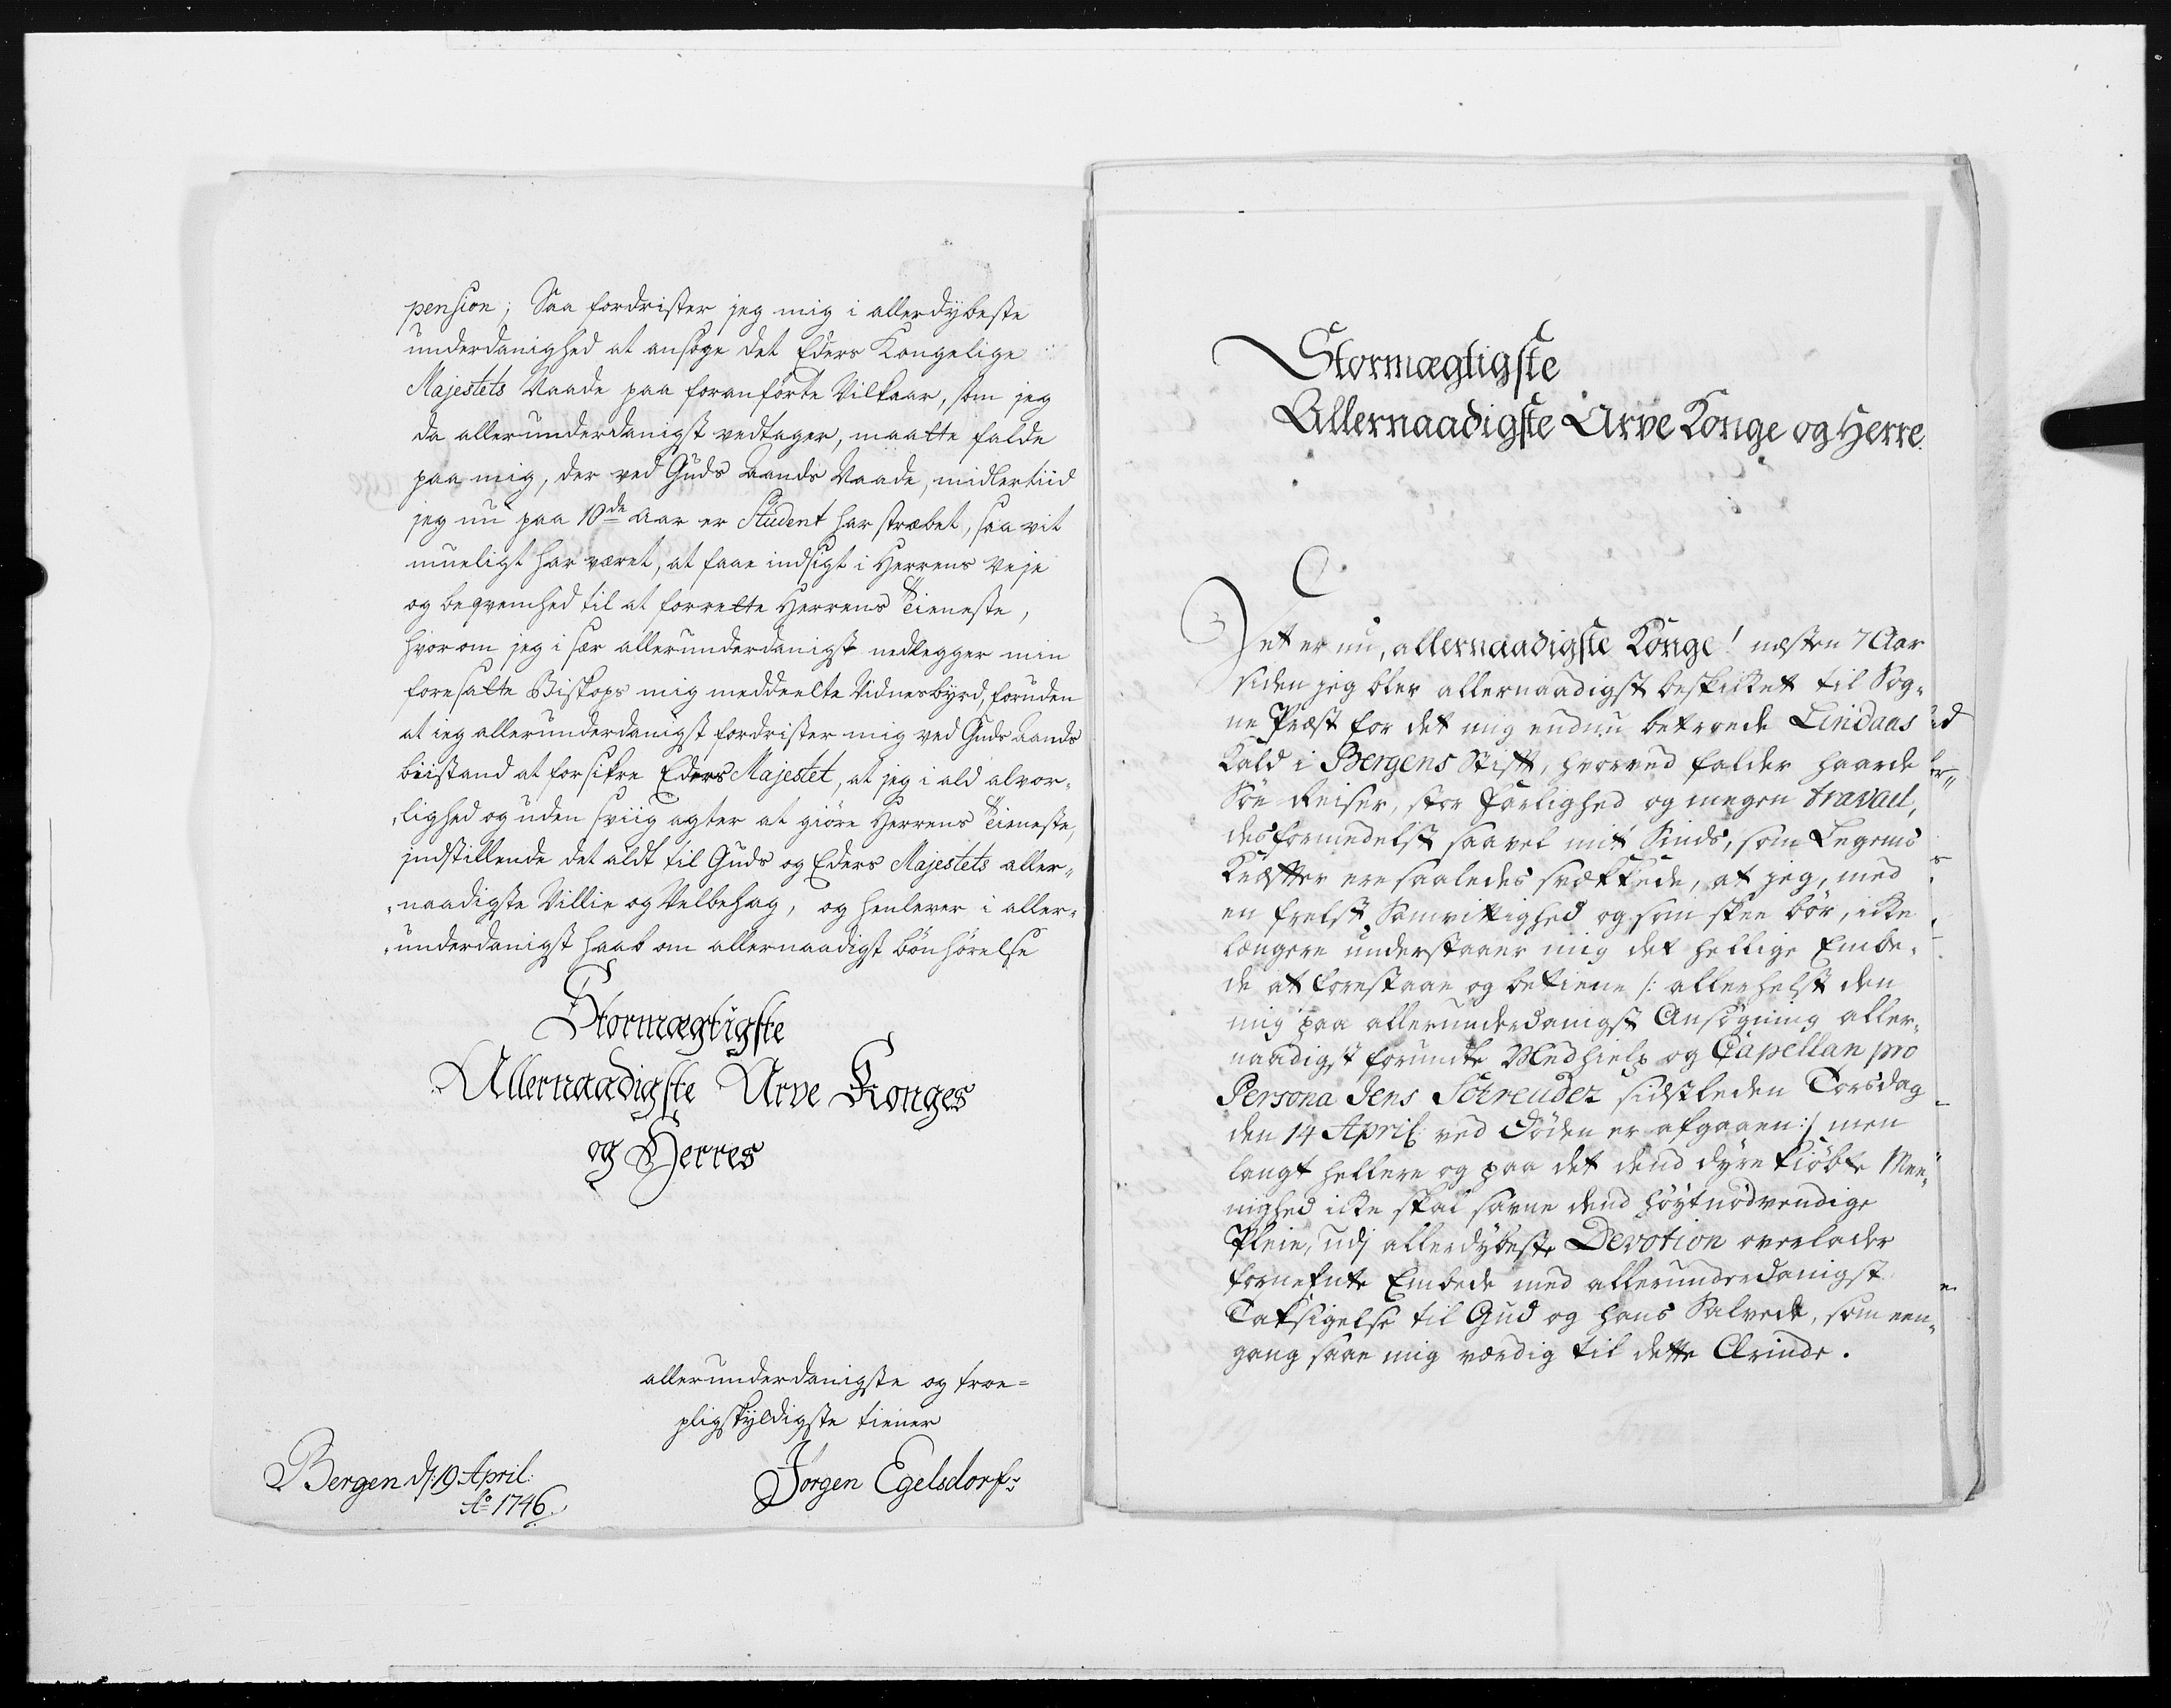 pension; Saa fordrister jeg mig i allerdybeste
underdanighed at ansøge det Eders Kongelige
Majestets Naade paa foranførte Vilkaar, som jeg
da allerunderdanigst vedtager, maatte falde
paa mig, der ved Guds Aands Naade, midlertiid
jeg nu paa 10de Aar er Student har stræbet, saa vit
mueligt har været, at faae indsigt i Herrens Veje
og beqvemhed til at forrette Herrens Tieneste,
hvorom jeg i sær allerunderdanigst nedlegger min
foresatte Biskops mig meddeelte Vidnesbyrd, foruden
at ieg allerunderdanigst fordrister mig ved Guds Aands
biistand at forsikre Eders Majestet, at jeg i ald alvor-
lighed og uden sviig agter at giøre Herrens Tieneste,
indstillende det aldt til Guds og Eders Majestets aller-
naadigste Villie og Velbehag, og henlever i aller-
underdanigst haab om allernaadigst bønhørelse
Stormægtigste
Allernaadigste Arve Konges
og Herres
allerunderdanigste og troe=
pligskyldigste tiener
Bergen d: 19 April:
Ao 1746.
Jørgen Egelsdorf:
Stormægtigste
Allernaadigste Arve Konge og Herre.
Det er nu, allernaadigste Konge! næsten 7 Aar
siden jeg blev allernaadigst beskikket til Sog-
ne Præst for det mig endnu betroede Lindaas
Kald i Bergens Stift, hvorved falder haarde
Søe Reiser, stor farlighed og megen travail,
desformedelst saavel mit Sinds, som Legems
Kræfter ere saaledes svækkede, at jeg, med
en frelst Samvittighed og som skee bør, icke
længere understaaer mig det hellige Embe-
de at forestaae og betiene /: allerhelst den
mig paa allerunderdanigst Ansøgning aller-
naadigst forundte Medhielp og Capellan pro
Persona Jens Schreuder sidstleden Torsdag
den 14 April: ved Døden er afgaaen :/ men
langt hellere og paa det dend dyre kiøbte Mee-
nighed icke skal savne dend høytnødvendige
Pleie, udj allerdybeste Devotion overlader
fornefnte Embede med allerunderdanigst
Taksigelse til Gud og hans Salvede, som een-
gang saae mig værdig til dette Ærinde.